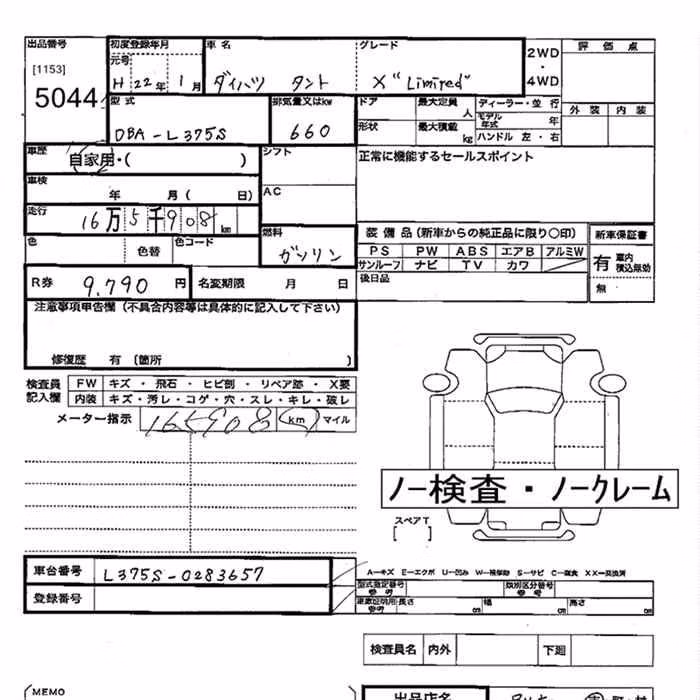 出品番号 初度登録年月 車名 グレード 2WD・4WD 評価点
[1153] 元号
5044 H 22年 1月 ダイハツ タント X "Limited"
型式 排気量又はkw ドア 最大定員 人 ディーラー・並行 外装 内装
DBA-L375S 660 形状 最大積載 kg モデル年式 年
ハンドル 左・右
車歴 自家用・( ) シフト 正常に機能するセールスポイント
車検 年 月( 日) AC
走行 16万5千908km
色 色替 色コード 燃料 ガソリン 装備品(新車からの純正品に限り〇印) 新車保証書
PS PW ABS エアB アルミW 有 車内 積込無効
サンルーフ ナビ TV カワ
R券 9,790円 名変期限 月 日 後日品 無
注意事項申告欄(不具合内容等は具体的に記入して下さい)
修復歴 有〔箇所 〕
検査員記入欄 FW キズ・飛石・ヒビ割・リペア跡・X要
内装 キズ・汚レ・コゲ・穴・スレ・キレ・破レ
メーター指示 165908 km マイル
ノー検査・ノークレーム
スペアT
[ ]
車台番号 L375S-0283657 A-キズ E-エクボ U-凹み W-補修跡 S-サビ C-腐食 XX-交換済
登録番号 型式指定番号 参考 類別区分番号 参考
参考 長さ cm 幅 cm 高さ cm
検査員名 内外 下廻
MEMO 出品店名